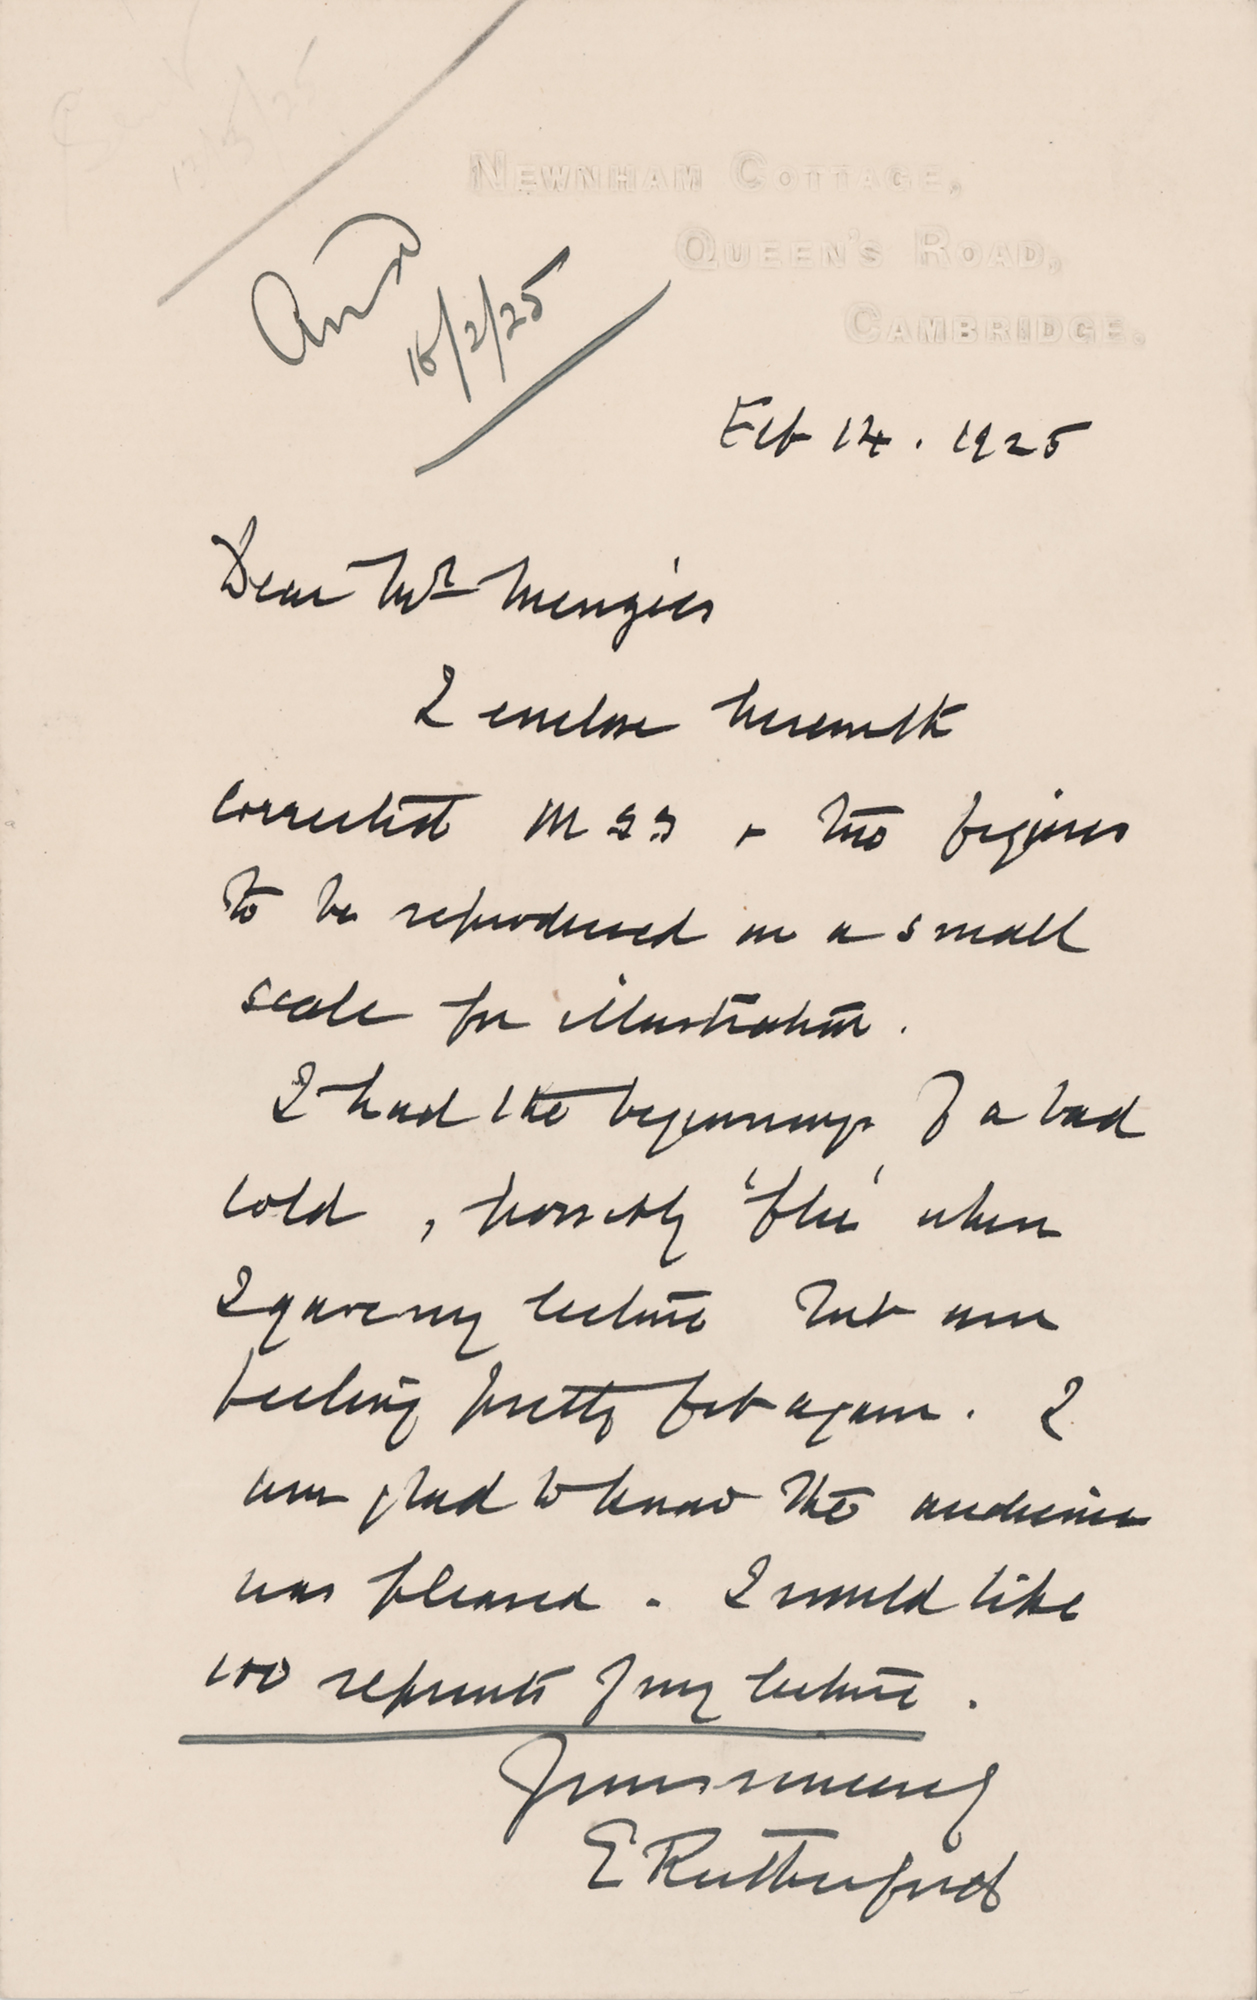 NEWNHAM COTTAGE,
QUEEN'S ROAD,
CAMBRIDGE.
Ansd
16/2/25
Feb 14. 1925
Dear Mr Menzies
I enclose herewith
corrected MSS + two figures
to be reproduced on a small
scale for illustration.
I had the beginnings of a bad
cold, possibly 'flu' when
I gave my lecture but am
feeling pretty fit again. I
am glad to know the audience
was pleased. I would like
100 reprints of my lecture.
Yours sincerely
E Rutherford